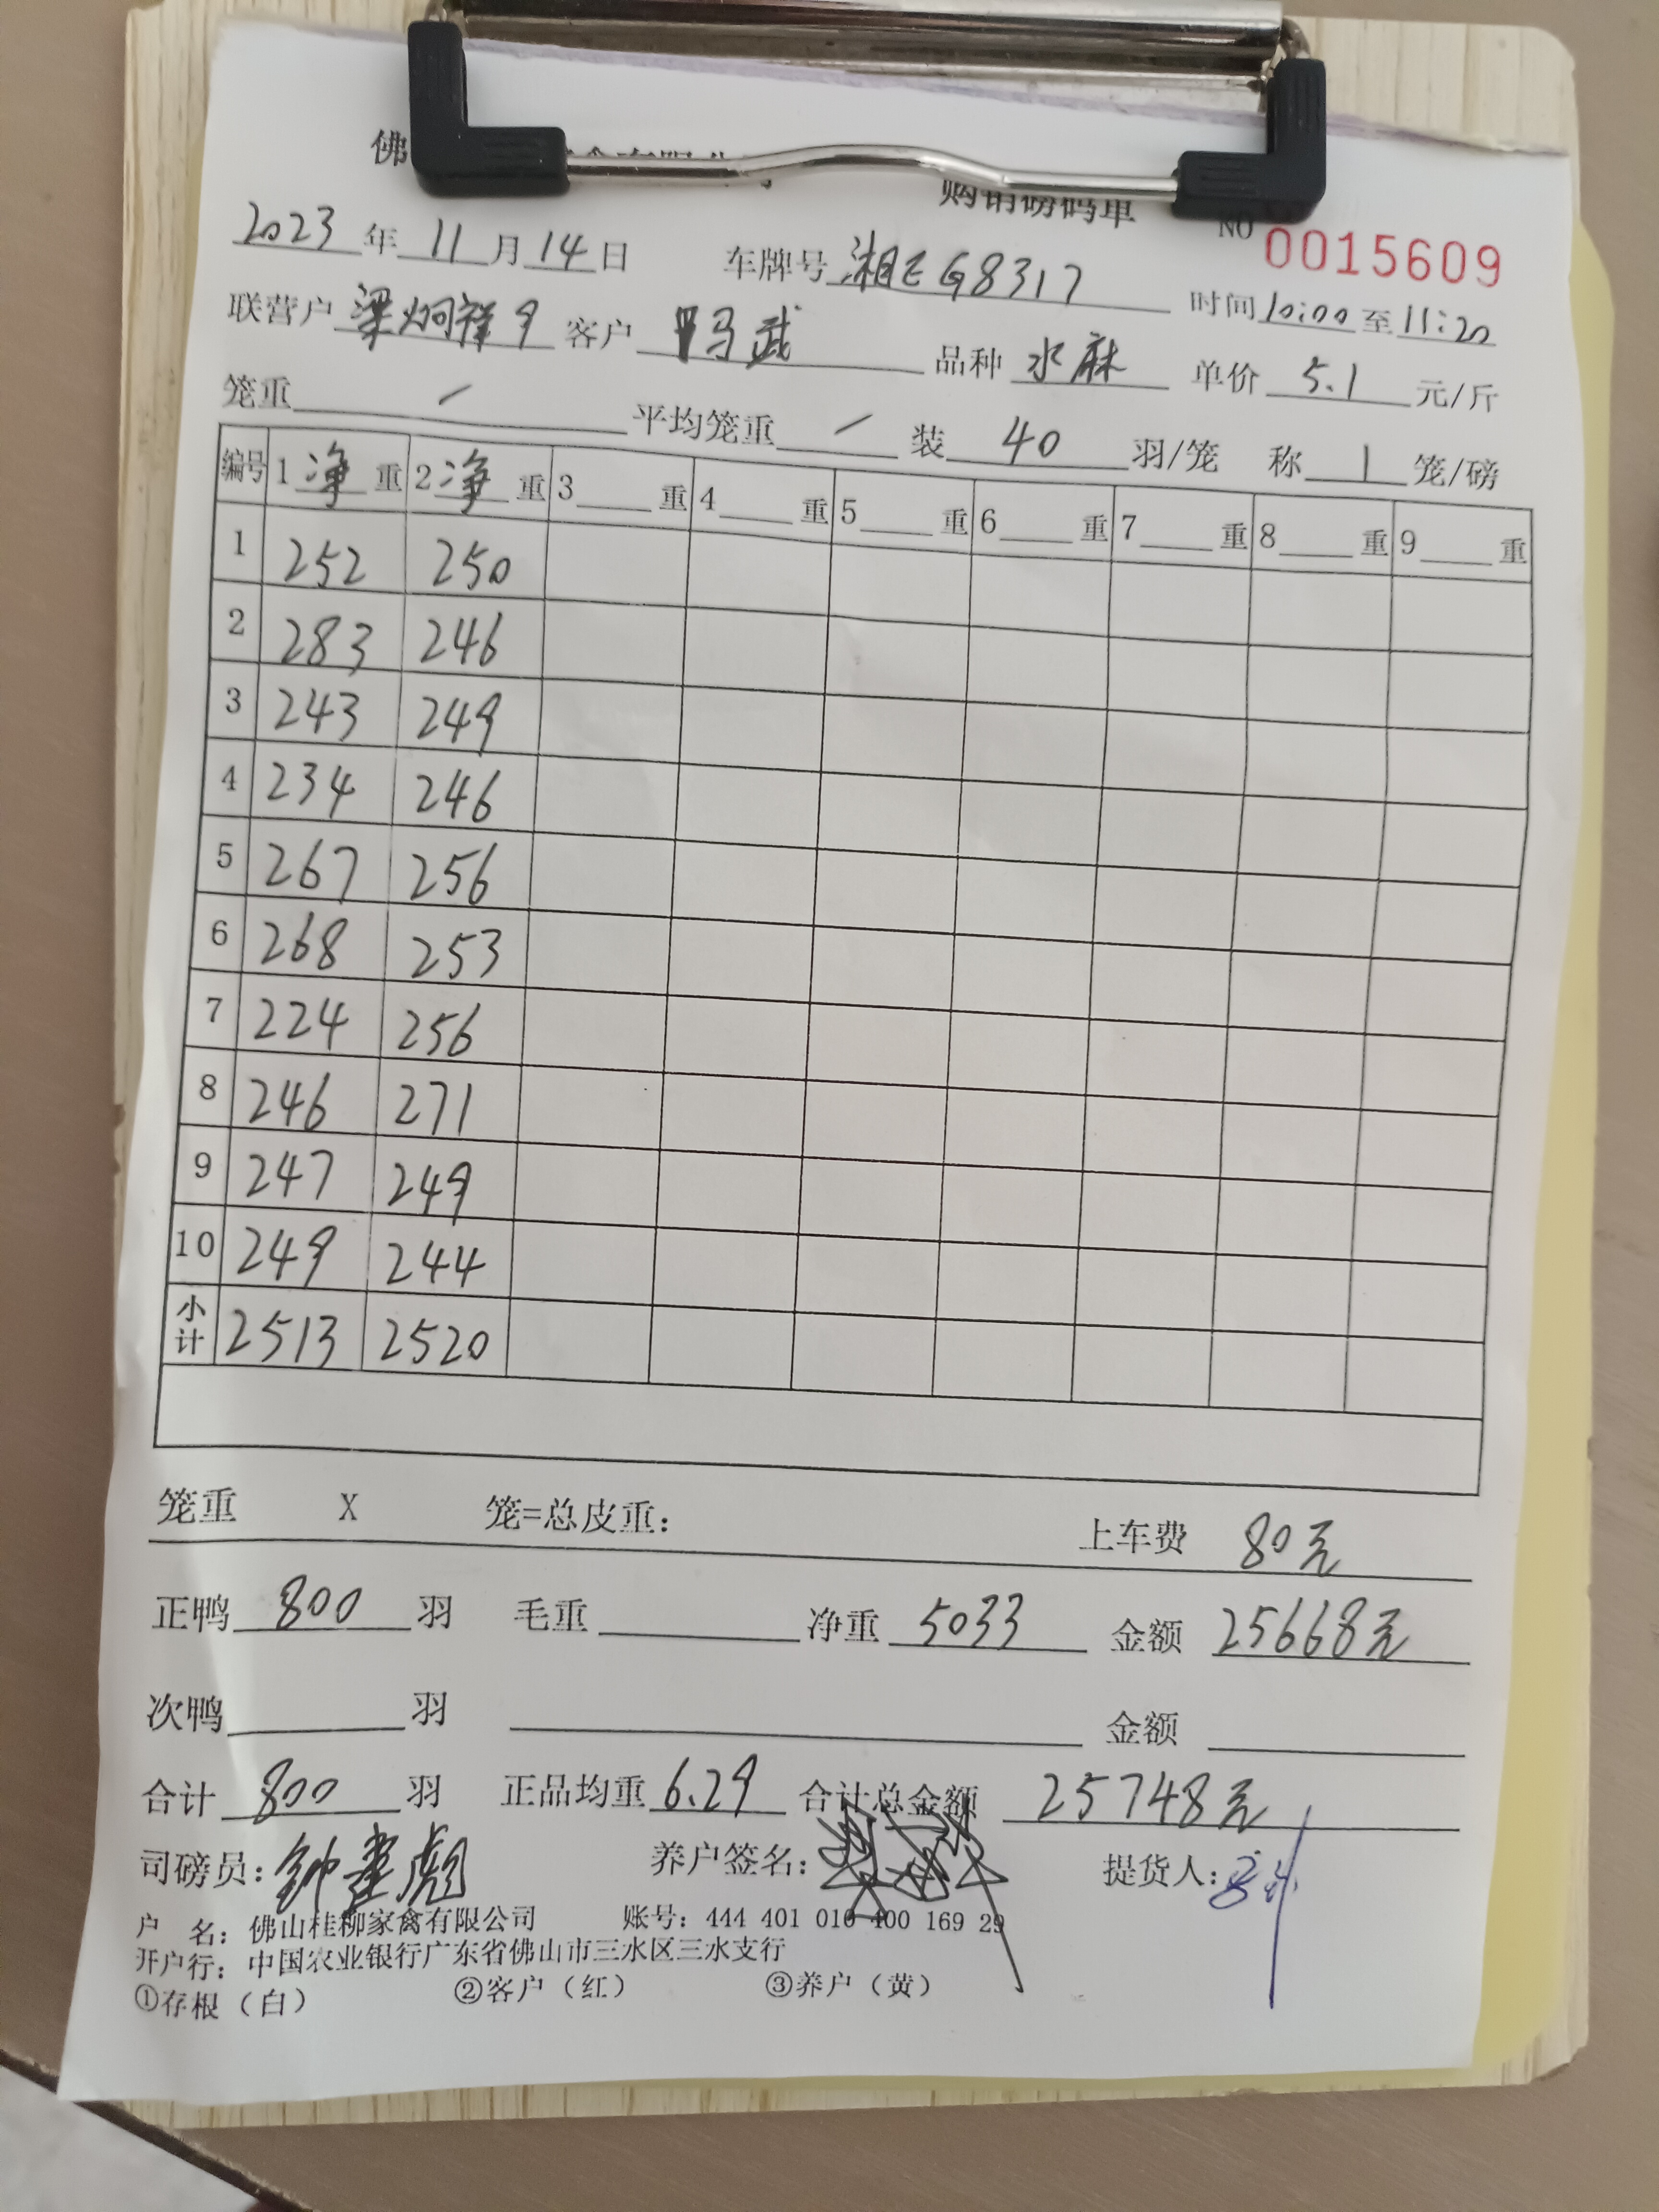 佛
购销磅码单
NO 0015609
2023年11月14日 车牌号 湘EG8317 时间 10:00至11:20
联营户 梁炯祥 客户 马武 品种 水麻 单价 5.1 元/斤
笼重 / 平均笼重 / 装 40 羽/笼 称 1 笼/磅
编号 1净重 2净重 3重 4重 5重 6重 7重 8重 9重
1 252 250
2 283 246
3 243 249
4 234 246
5 267 256
6 268 253
7 224 256
8 246 271
9 247 249
10 249 244
小计 2513 2520
笼重 X 笼=总皮重: 上车费 80元
正鸭 800 羽 毛重 净重 5033 金额 25668元
次鸭 羽 金额
合计 800 羽 正品均重 6.29 合计总金额 25748元
司磅员: 钟 彪 养户签名: 提货人:
户 名: 佛山桂柳家禽有限公司 账号: 444 401 010 400 169 29
开户行: 中国农业银行广东省佛山市三水区三水支行
①存根(白) ②客户(红) ③养户(黄)